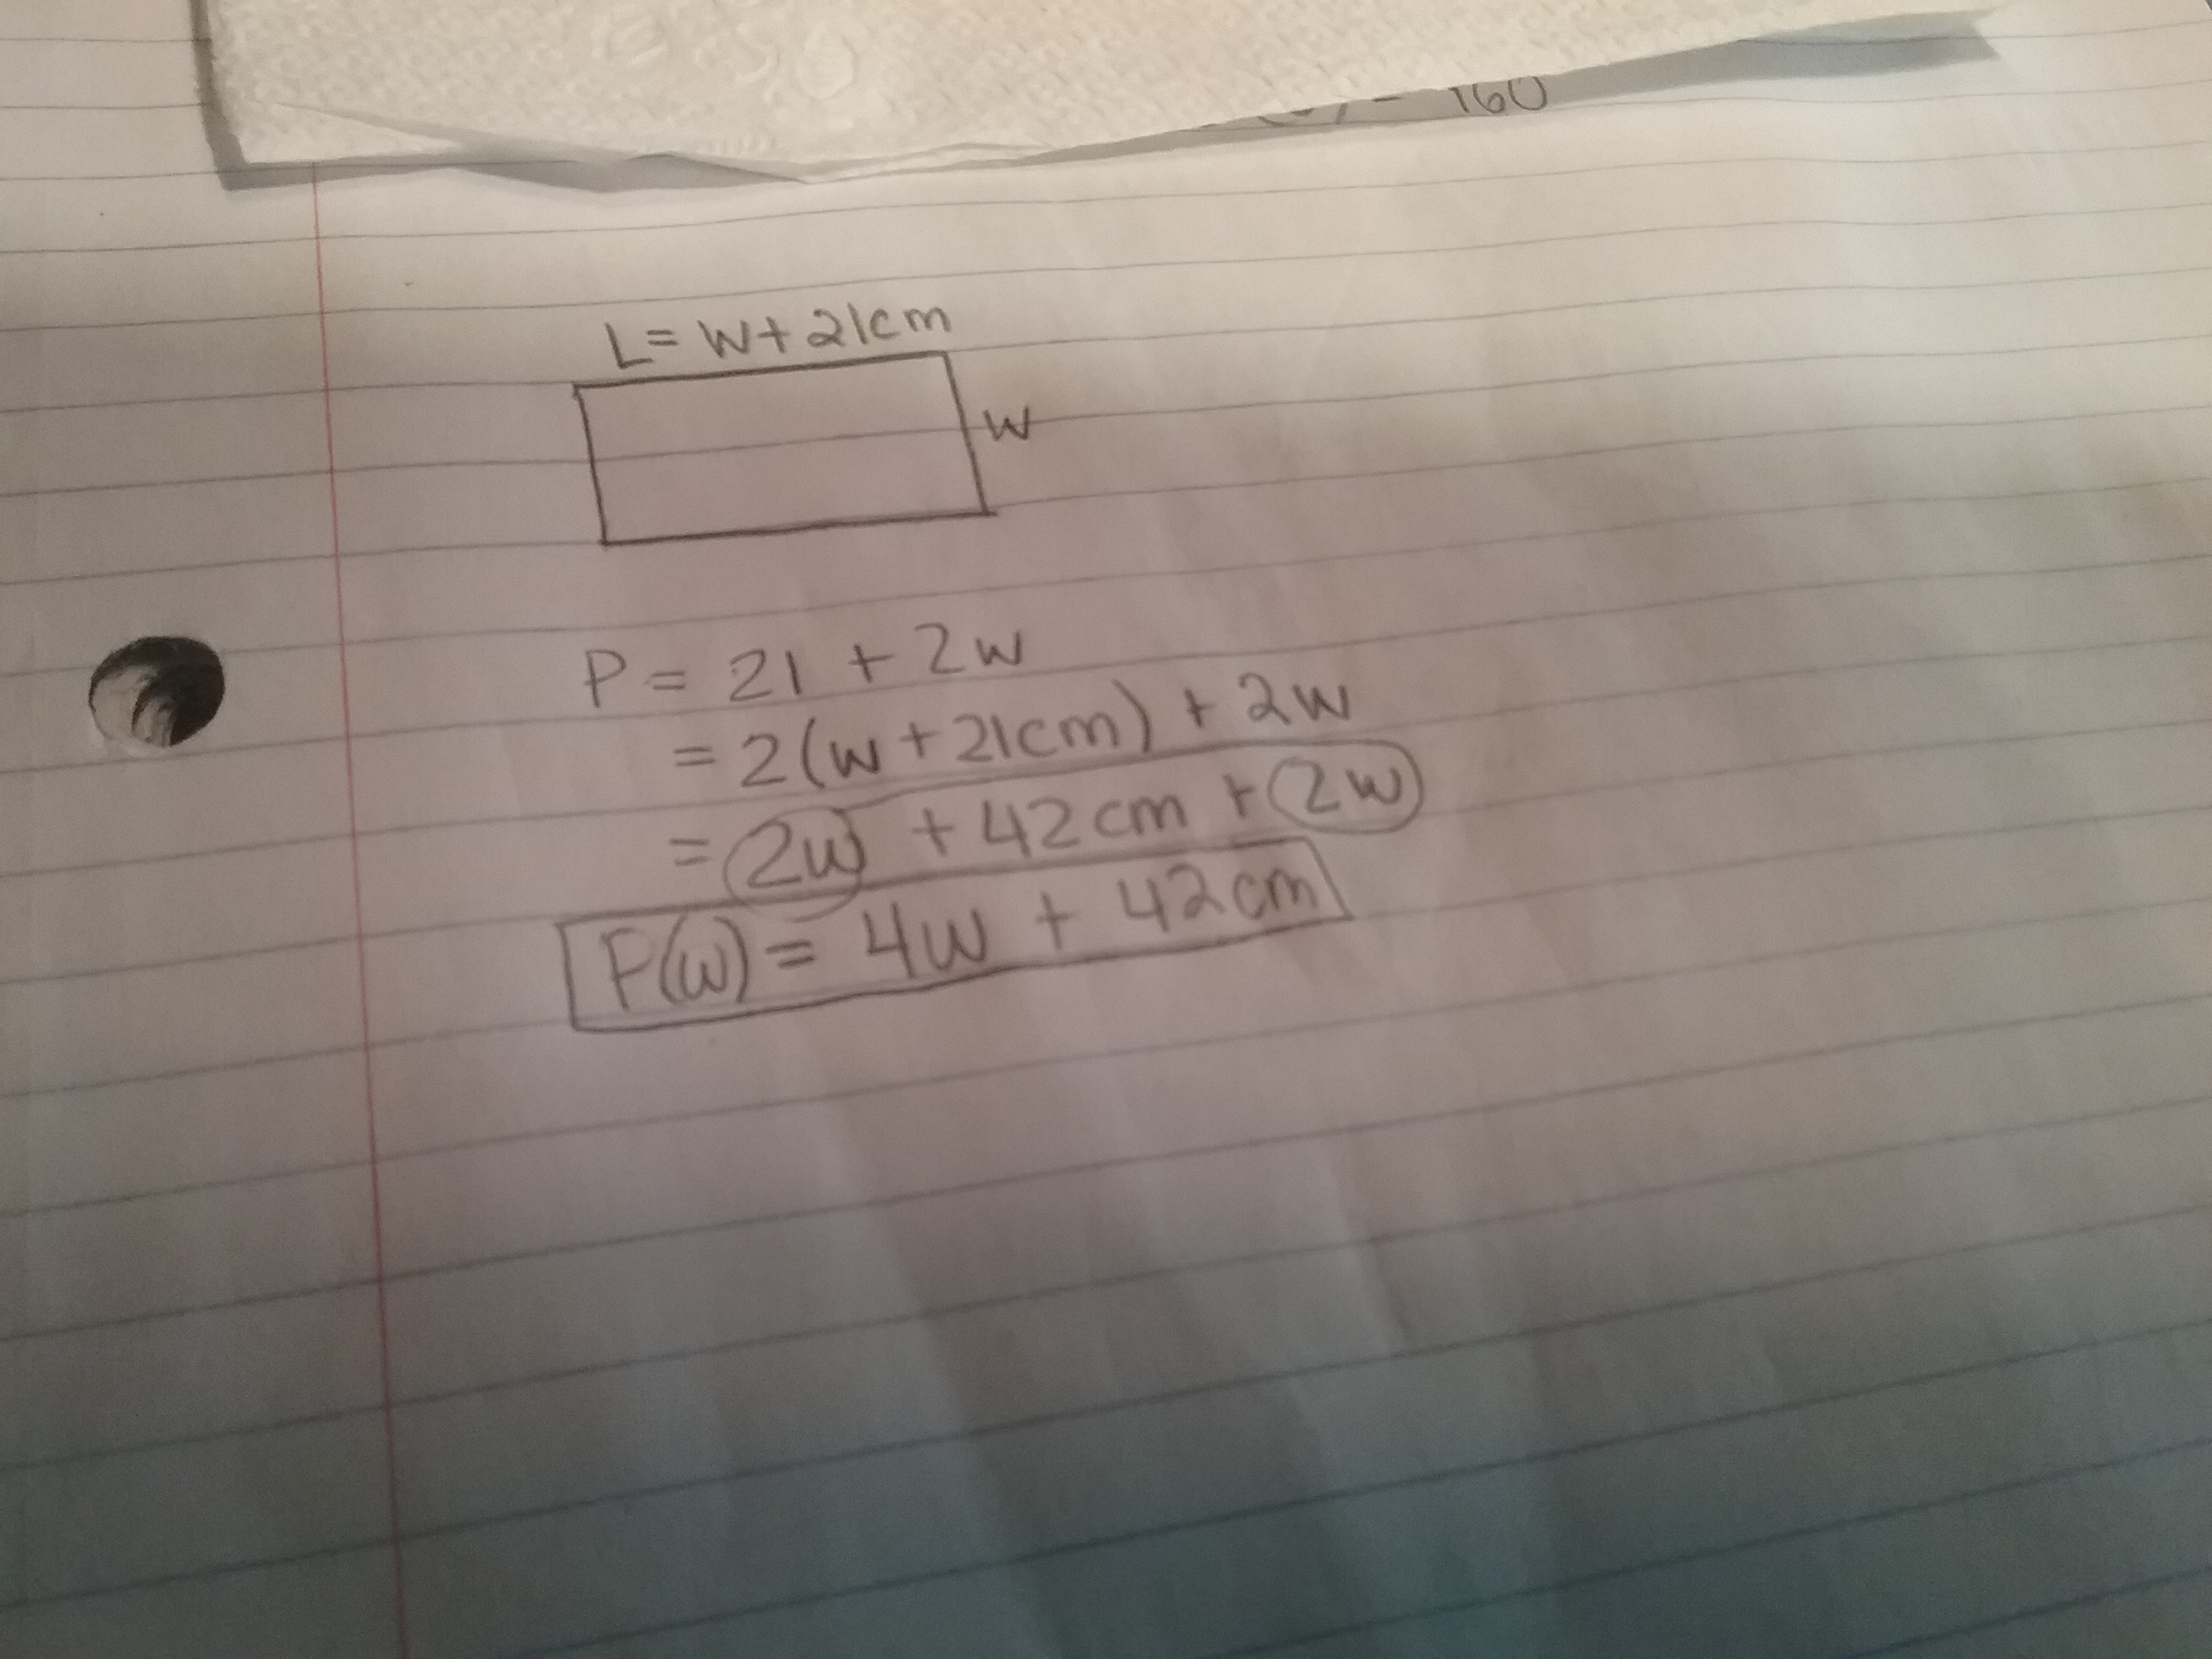 - 160
L = W + 21cm
W
P = 2l + 2w
= 2(w + 21cm) + 2w
= 2w + 42cm + 2w
P(w) = 4w + 42cm